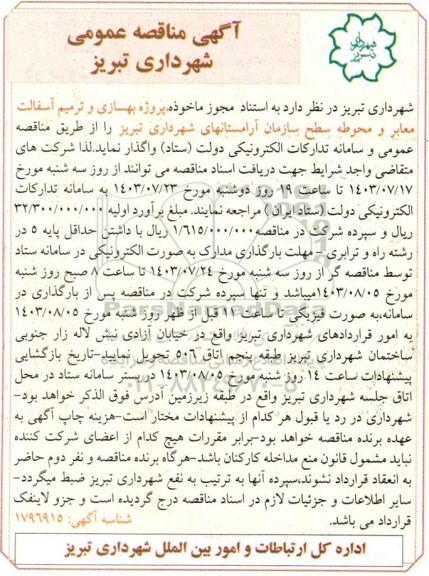 آگهی مناقصه عمومی
شهرداری تبریز
شهرداری تبریز در نظر دارد به استناد مجوز ماخوذه،پروژه بهسازی و ترمیم آسفالت
معابر و محوطه سطح سازمان آرامستانهای شهرداری تبریز را از طریق مناقصه
عمومی و سامانه تدارکات الکترونیکی دولت (ستاد) واگذار نماید.لذا شرکت های
متقاضی واجد شرایط جهت دریافت اسناد مناقصه می توانند از روز سه شنبه مورخ
۱۴۰۳/۰۷/۱۷ تا ساعت ۱۹ روز دوشنبه مورخ ۱۴۰۳/۰۷/۲۳ به سامانه تدارکات
الکترونیکی دولت (ستاد ایران) مراجعه نمایند. مبلغ برآورد اولیه ۳۲/۳۰۰/۰۰۰/۰۰۰
ریال و سپرده شرکت در مناقصه ۱/۶۱۵/۰۰۰/۰۰۰ ریال با داشتن حداقل پایه ۵ در
رشته راه و ترابری - مهلت بارگذاری مدارک به صورت الکترونیکی در سامانه ستاد
توسط مناقصه گر از روز سه شنبه مورخ ۱۴۰۳/۰۷/۲۴ تا ساعت ۸ صبح روز شنبه
مورخ ۱۴۰۳/۰۸/۰۵ میباشد و تنها سپرده شرکت در مناقصه پس از بارگذاری در
سامانه،به صورت فیزیکی تا ساعت ۱۴ قبل از ظهر روز شنبه مورخ ۱۴۰۳/۰۸/۰۵
به امور قراردادهای شهرداری تبریز واقع در خیابان آزادی نبش لاله زار جنوبی
ساختمان شهرداری تبریز طبقه پنجم اتاق ۵۰۶ تحویل نمایید-تاریخ بازگشایی
پیشنهادات ساعت ۱۴ روز شنبه مورخ ۱۴۰۳/۰۸/۰۵ در بستر سامانه ستاد در محل
اتاق جلسه شهرداری تبریز واقع در طبقه زیرزمین آدرس فوق الذکر خواهد بود-
شهرداری در رد یا قبول هر کدام از پیشنهادات مختار است-هزینه چاپ آگهی به
عهده برنده مناقصه خواهد بود-برابر مقررات هیچ کدام از اعضای شرکت کننده
نباید مشمول قانون منع مداخله کارکنان باشد-هرگاه برنده مناقصه و نفر دوم حاضر
به انعقاد قرارداد نشوند،سپرده آنها به ترتیب به نفع شهرداری تبریز ضبط میگردد-
سایر اطلاعات و جزئیات لازم در اسناد مناقصه درج گردیده است و جزو لاینفک
قرارداد می باشد.
شناسه آگهی: ۱۷۹۶۹۱۵
اداره کل ارتباطات و امور بین الملل شهرداری تبریز